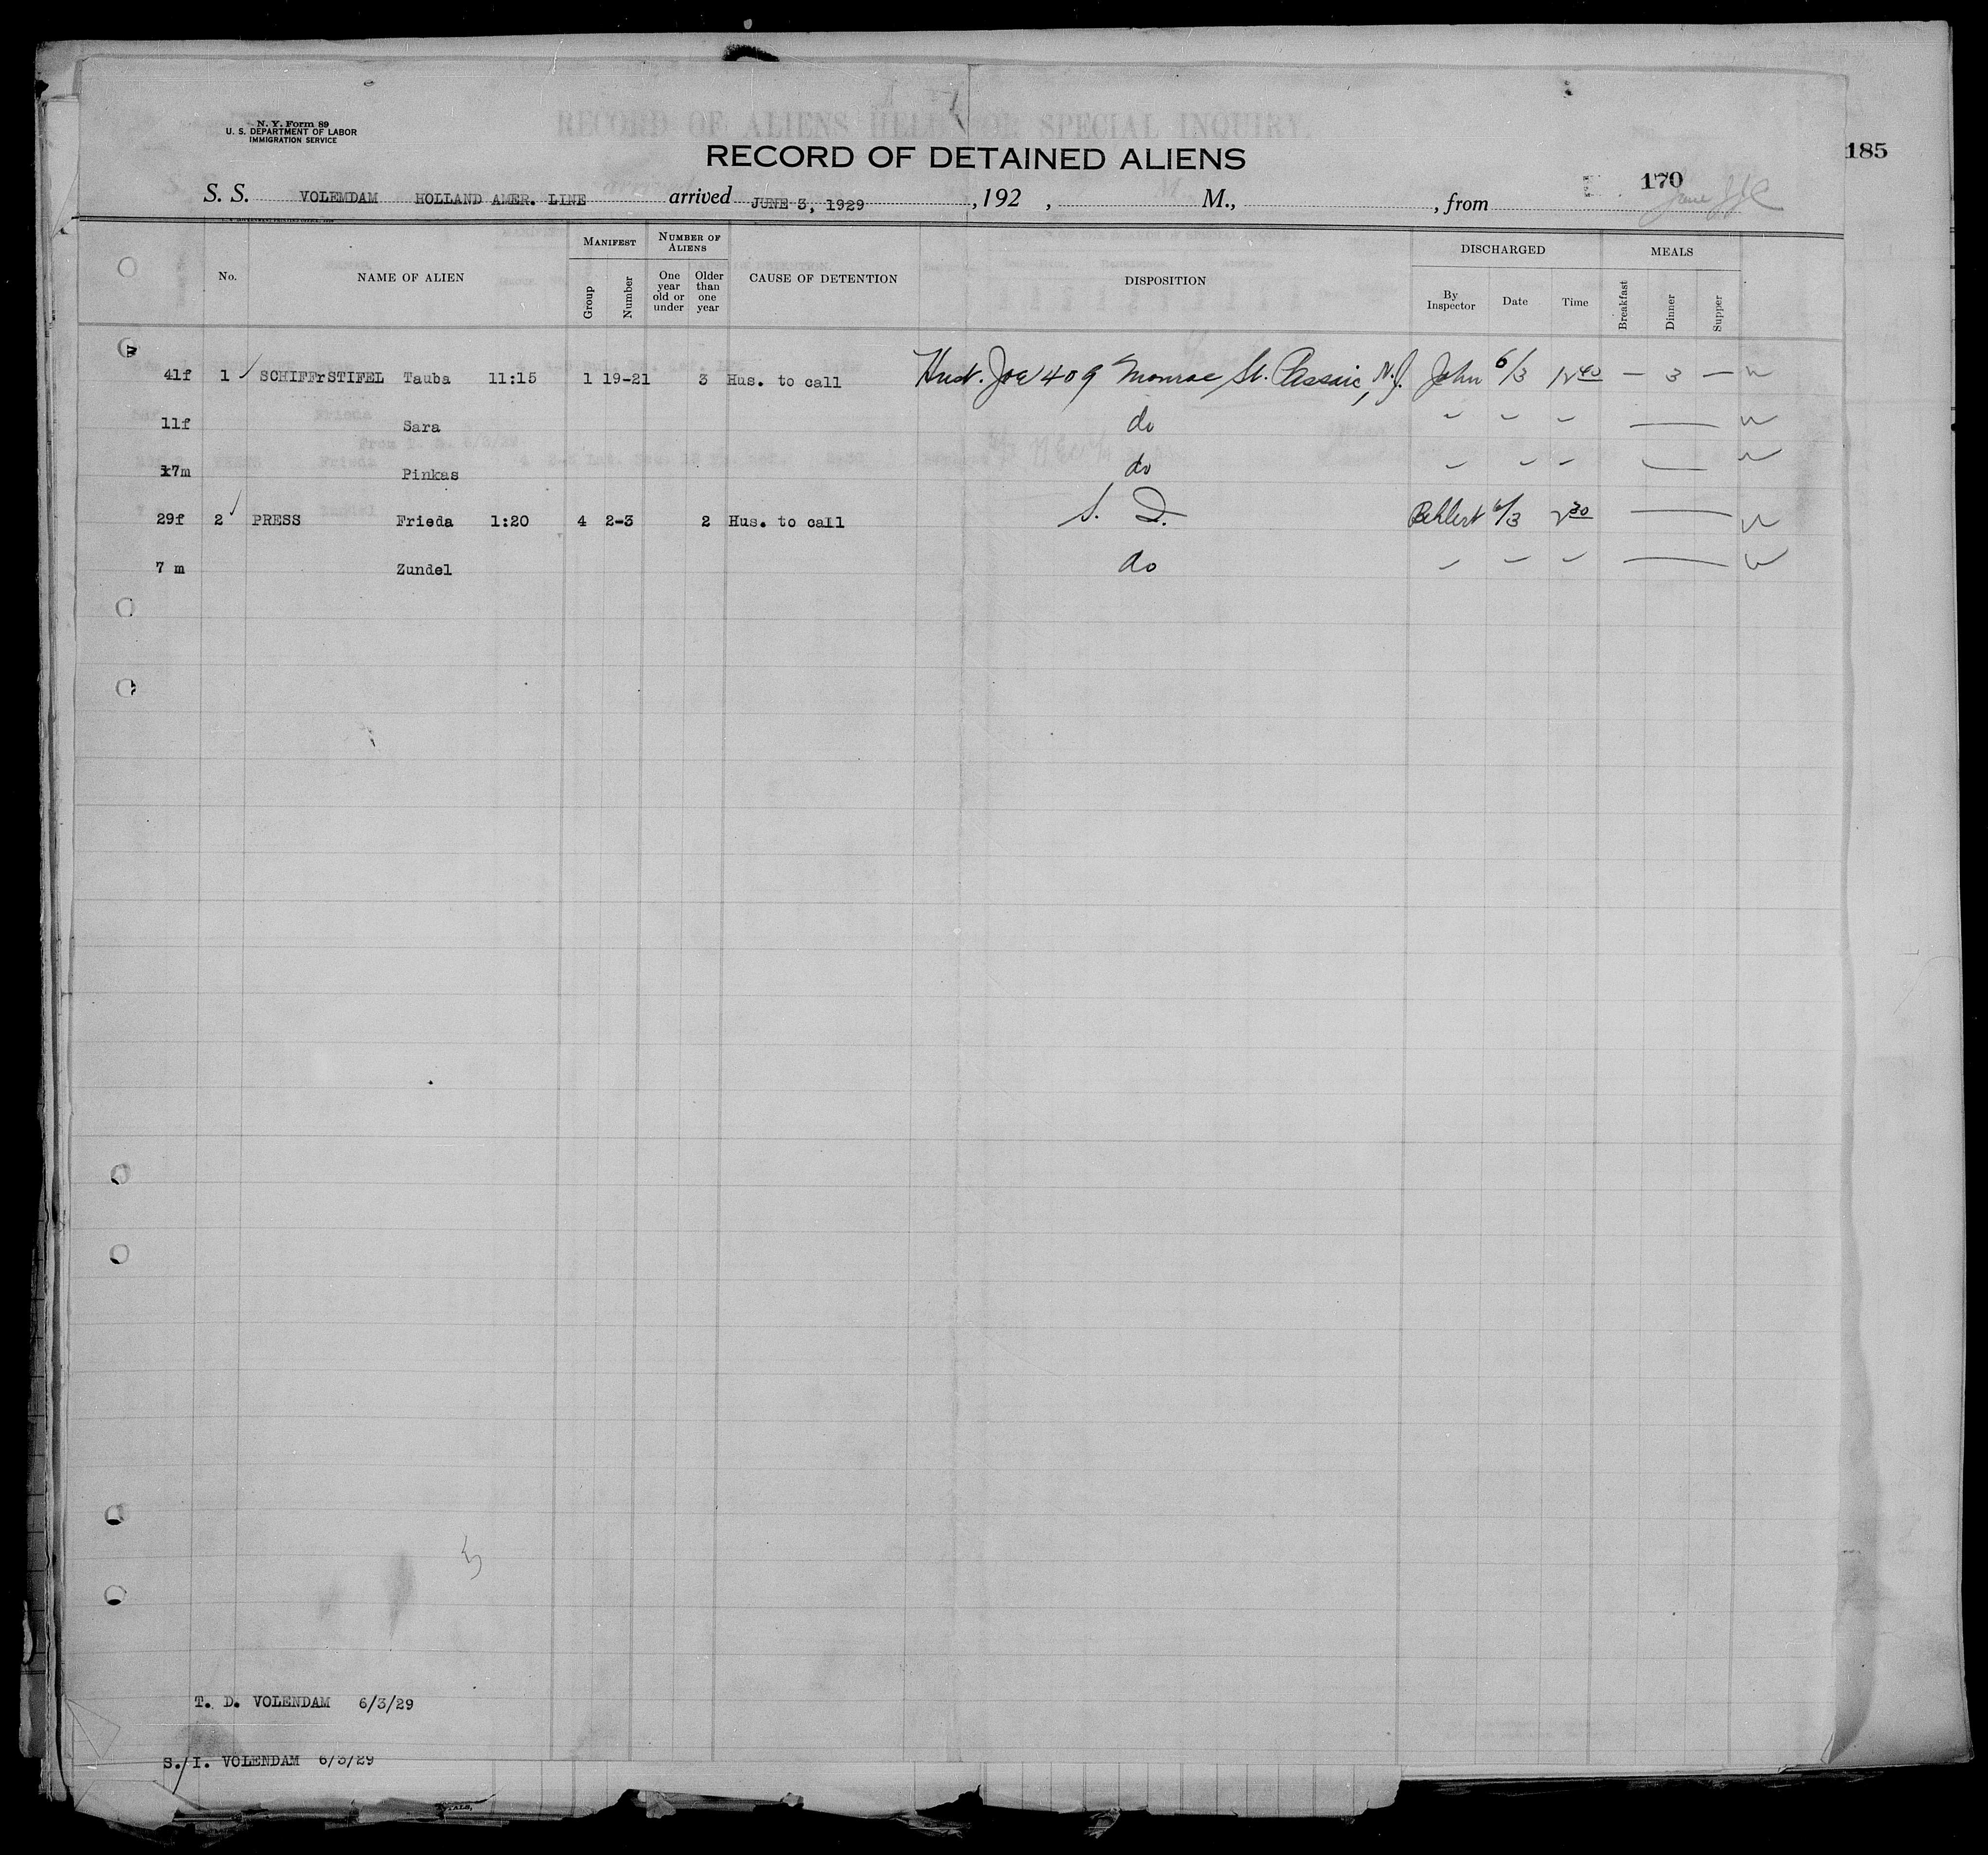 N. Y. Form 89
U. S. DEPARTMENT OF LABOR
IMMIGRATION SERVICE
RECORD OF ALIENS HELD FOR SPECIAL INQUIRY.
RECORD OF DETAINED ALIENS
185
170
S. S. VOLEMDAM HOLLAND AMER. LINE arrived JUNE 3, 1929 , 192 , M., , from
No. NAME OF ALIEN MANIFEST Group Number NUMBER OF ALIENS One year old or under Older than one year CAUSE OF DETENTION DISPOSITION DISCHARGED By Inspector Date Time MEALS Breakfast Dinner Supper
41f 1 ✓ SCHIFFrSTIFEL Tauba 11:15 1 19-21 3 Hus. to call Husb. Joe 409 Monroe St. Passaic, N.J. John 6/3 12 40 — 3 — w
11f Sara do " " " — w
17m Pinkas do " " " — w
29f 2 ✓ PRESS Frieda 1:20 4 2-3 2 Hus. to call S. D. Behlert 6/3 2 30 — w
7 m Zundel do " " " — w
T. D. VOLENDAM 6/3/29
S./I. VOLENDAM 6/3/29